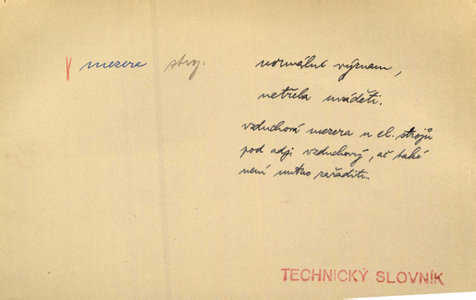 mezera stroj. normální význam,
netřeba uváděti.
vzduchová mezera u el. strojů
pod adj. vzduchový, ač také
není nutno zařaditi.
TECHNICKÝ SLOVNÍK